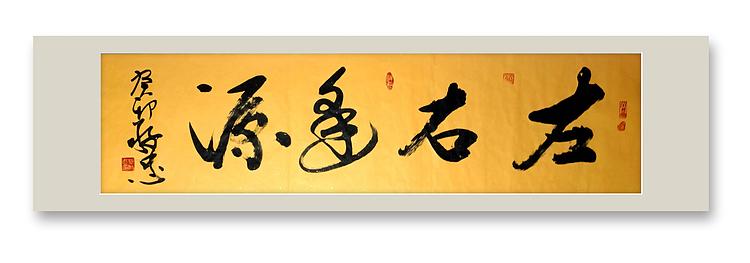 左右逢源
癸卯